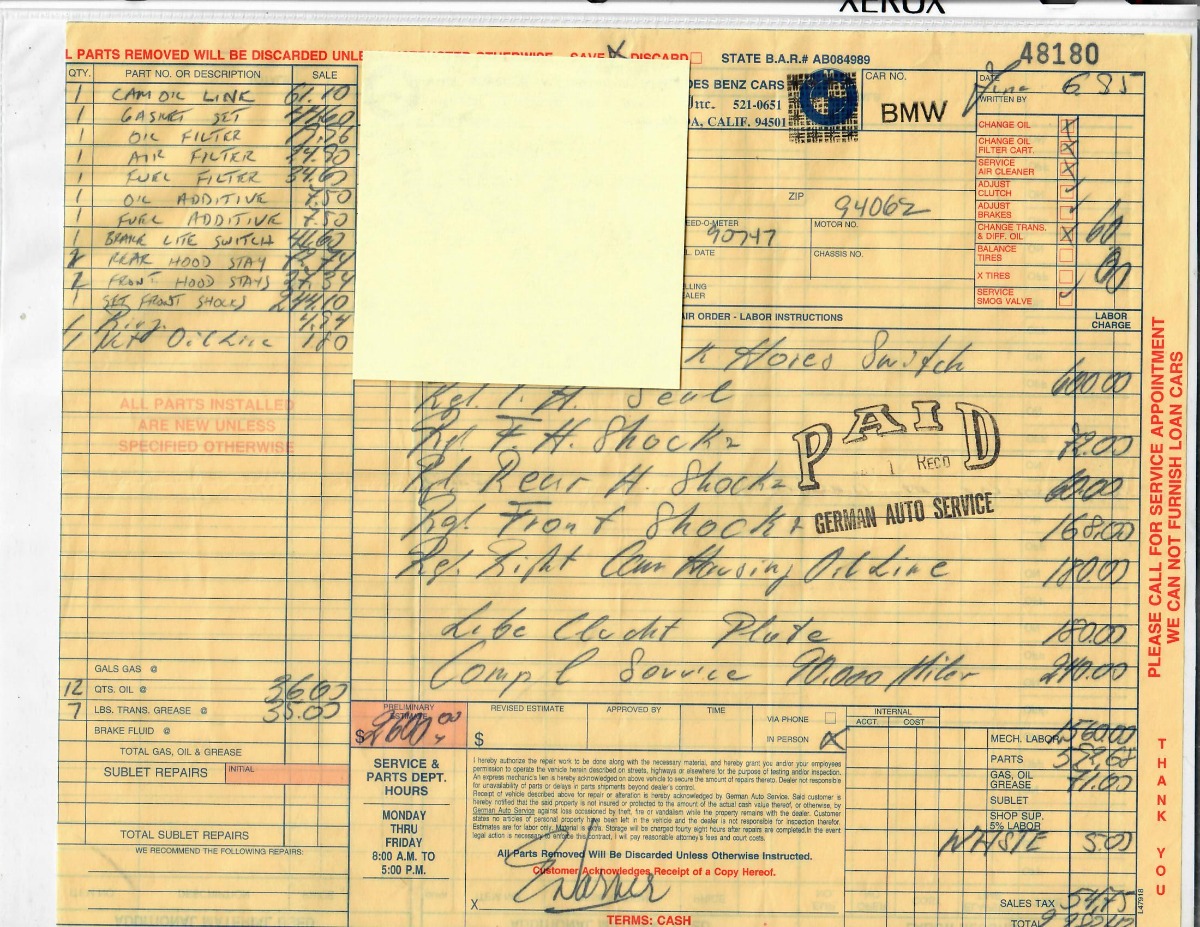 XEROX
L PARTS REMOVED WILL BE DISCARDED UNLE
SAVE X DISCARD
STATE B.A.R.# AB084989
48180
QTY. PART NO. OR DESCRIPTION SALE
1 CAM OIL LINK 61.10
1 GASKET SET
1 OIL FILTER
1 AIR FILTER 24.90
1 FUEL FILTER 34.60
1 OIL ADDITIVE 7.50
1 FUEL ADDITIVE 7.50
1 BRAKE LITE SWITCH
2 REAR HOOD STAY
2 FRONT HOOD STAYS 27.34
1 SET FRONT SHOCKS 244.10
1 Ring 4.94
1 Oil Line 180
ALL PARTS INSTALLED
ARE NEW UNLESS
SPECIFIED OTHERWISE
GALS GAS @
12 QTS. OIL @ 36.00
7 LBS. TRANS. GREASE @ 35.00
BRAKE FLUID @
TOTAL GAS, OIL & GREASE
SUBLET REPAIRS INITIAL
TOTAL SUBLET REPAIRS
WE RECOMMEND THE FOLLOWING REPAIRS:
DES BENZ CARS
Inc. 521-0651
A, CALIF. 94501
CAR NO.
BMW
DATE
June 6 85
WRITTEN BY
ZIP 94062
EED-O-METER
90747
MOTOR NO.
L. DATE
CHASSIS NO.
LLING
EALER
CHANGE OIL X
CHANGE OIL
FILTER CART. X
SERVICE
AIR CLEANER X
ADJUST
CLUTCH
ADJUST
BRAKES
CHANGE TRANS.
& DIFF. OIL X
BALANCE
TIRES
X TIRES
SERVICE
SMOG VALVE
AIR ORDER - LABOR INSTRUCTIONS
LABOR
CHARGE
Switch
600.00
Seal
Rpl. F. H. Shocks 72.00
Rpl. Rear H. Shocks 60.00
Rpl. Front Shocks 168.00
Rpl. Right Cam Housing Oil Line 180.00
Plate 180.00
Compl Service 90.000 Miles 240.00
PAID
RECD
GERMAN AUTO SERVICE
PLEASE CALL FOR SERVICE APPOINTMENT
WE CAN NOT FURNISH LOAN CARS
THANK YOU
PRELIMINARY
ESTIMATE
$2600.00
REVISED ESTIMATE
$
APPROVED BY
TIME
VIA PHONE
IN PERSON X
INTERNAL
ACCT. COST
SERVICE &
PARTS DEPT.
HOURS
MONDAY
THRU
FRIDAY
8:00 A.M. TO
5:00 P.M.
I hereby authorize the repair work to be done along with the necessary material, and hereby grant you and/or your employees
permission to operate the vehicle herein described on streets, highways or elsewhere for the purpose of testing and/or inspection.
An express mechanic's lien is hereby acknowledged on above vehicle to secure the amount of repairs thereto. Dealer not responsible
for unavailability of parts or delays in parts shipments beyond dealer's control.
Receipt of vehicle described above for repair or alteration is hereby acknowledged by German Auto Service. Said customer is
hereby notified that the said property is not insured or protected to the amount of the actual cash value thereof, or otherwise, by
German Auto Service against loss occasioned by theft, fire or vandalism while the property remains with the dealer. Customer
states no articles of personal property have been left in the vehicle and the dealer is not responsible for inspection therefor.
Estimates are for labor only. Material is extra. Storage will be charged fourty eight hours after repairs are completed.In the event
legal action is necessary to enforce this contract, I will pay reasonable attorney's fees and court costs.
All Parts Removed Will Be Discarded Unless Otherwise Instructed.
Customer Acknowledges Receipt of a Copy Hereof.
X
TERMS: CASH
MECH. LABOR 1560.00
PARTS
GAS, OIL
GREASE 71.00
SUBLET
SHOP SUP.
5% LABOR
WASTE 5.00
SALES TAX 54.75
TOTAL
L47918